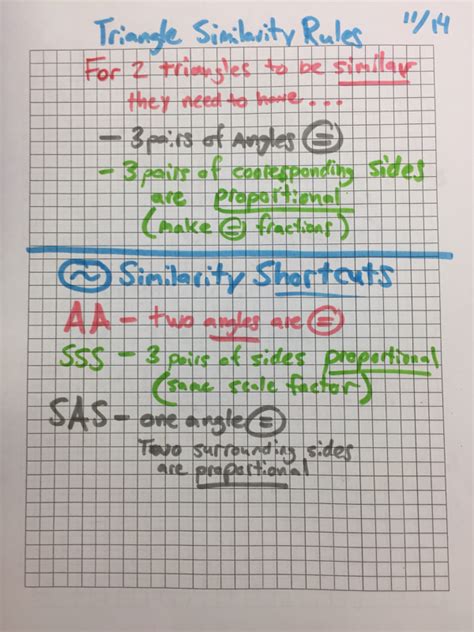 Triangle Similarity Rules 11/14
For 2 triangles to be similar
they need to have...
- 3 pairs of Angles =
- 3 pairs of cooresponding sides
are proportional
(make = fractions)
~ Similarity Shortcuts
AA - two angles are =
SSS - 3 pairs of sides proportional
(same scale factor)
SAS - one angle =
Two surrounding sides
are proportional